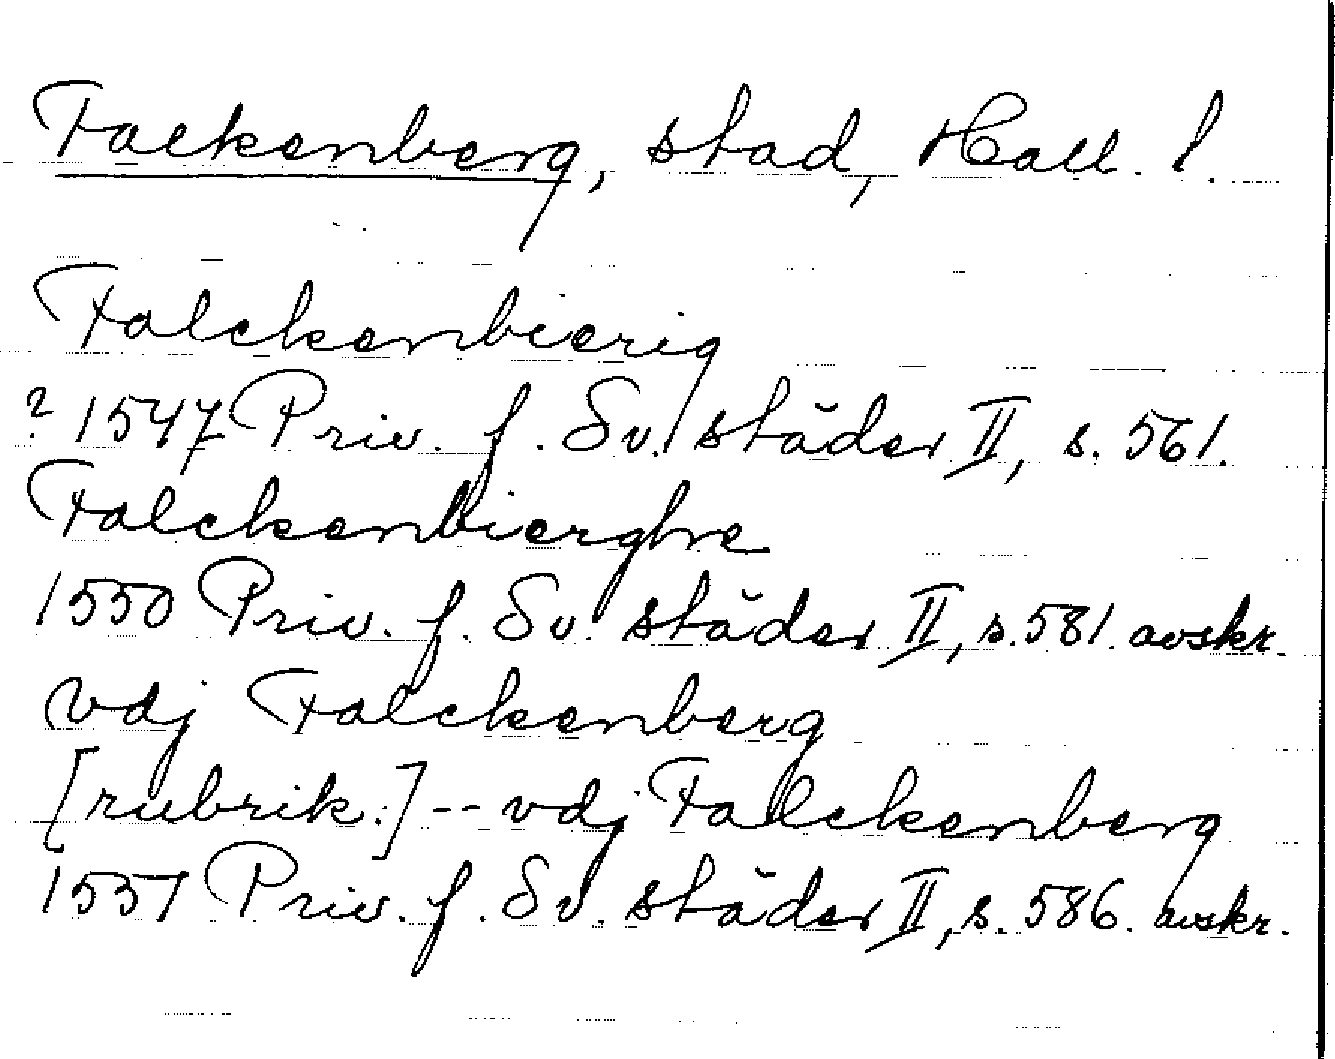 Falkenberg, stad, Hall. l.
Falckenbierig
? 1547 Priv. f. Sv. städer II, s. 561.
Falckenbierghe
1550 Priv. f. Sv. städer II, s. 581. avskr.
vdj Falckenberg
[rubrik:] -- vdj Falckenberg
1551 Priv. f. Sv. städer II, s. 586. avskr.